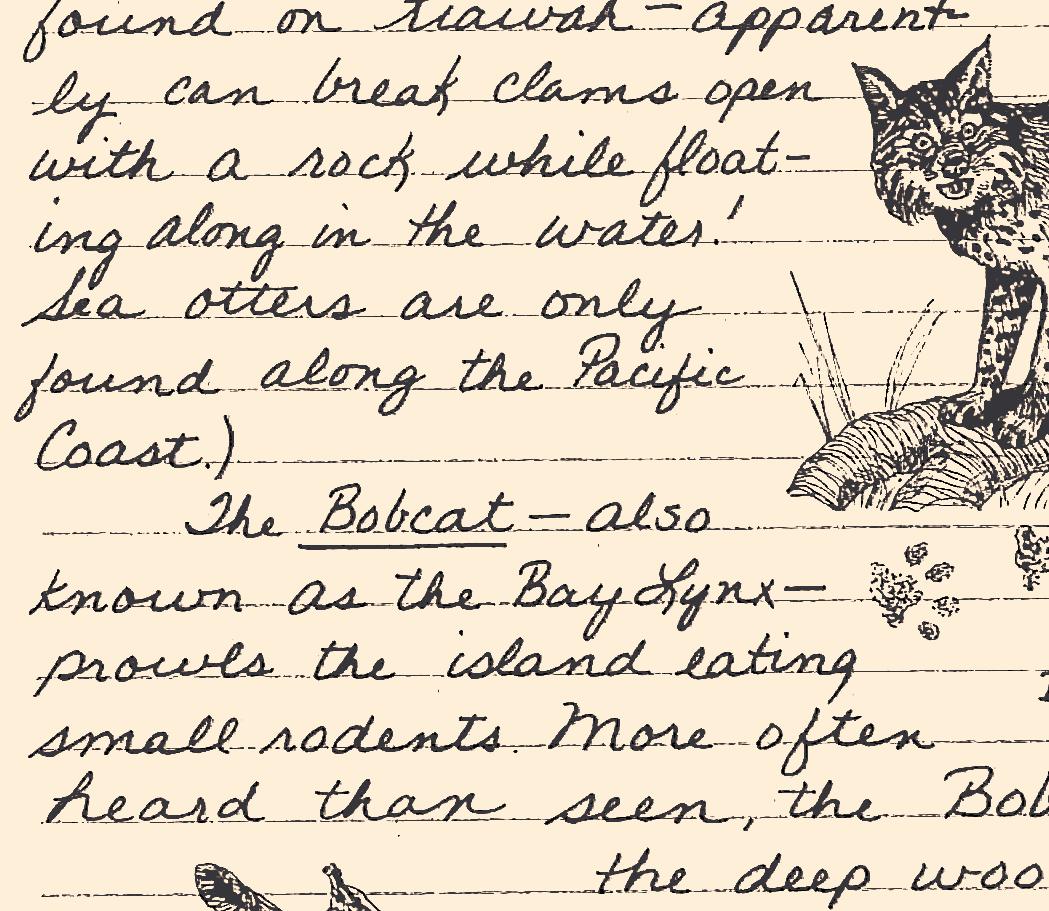 found on Kiawah — apparent-
ly can break clams open
with a rock while float-
ing along in the water!
Sea otters are only
found along the Pacific
Coast.)
The Bobcat — also
known as the Bay Lynx—
prowls the island eating
small rodents. More often
heard than seen, the Bob
the deep woo